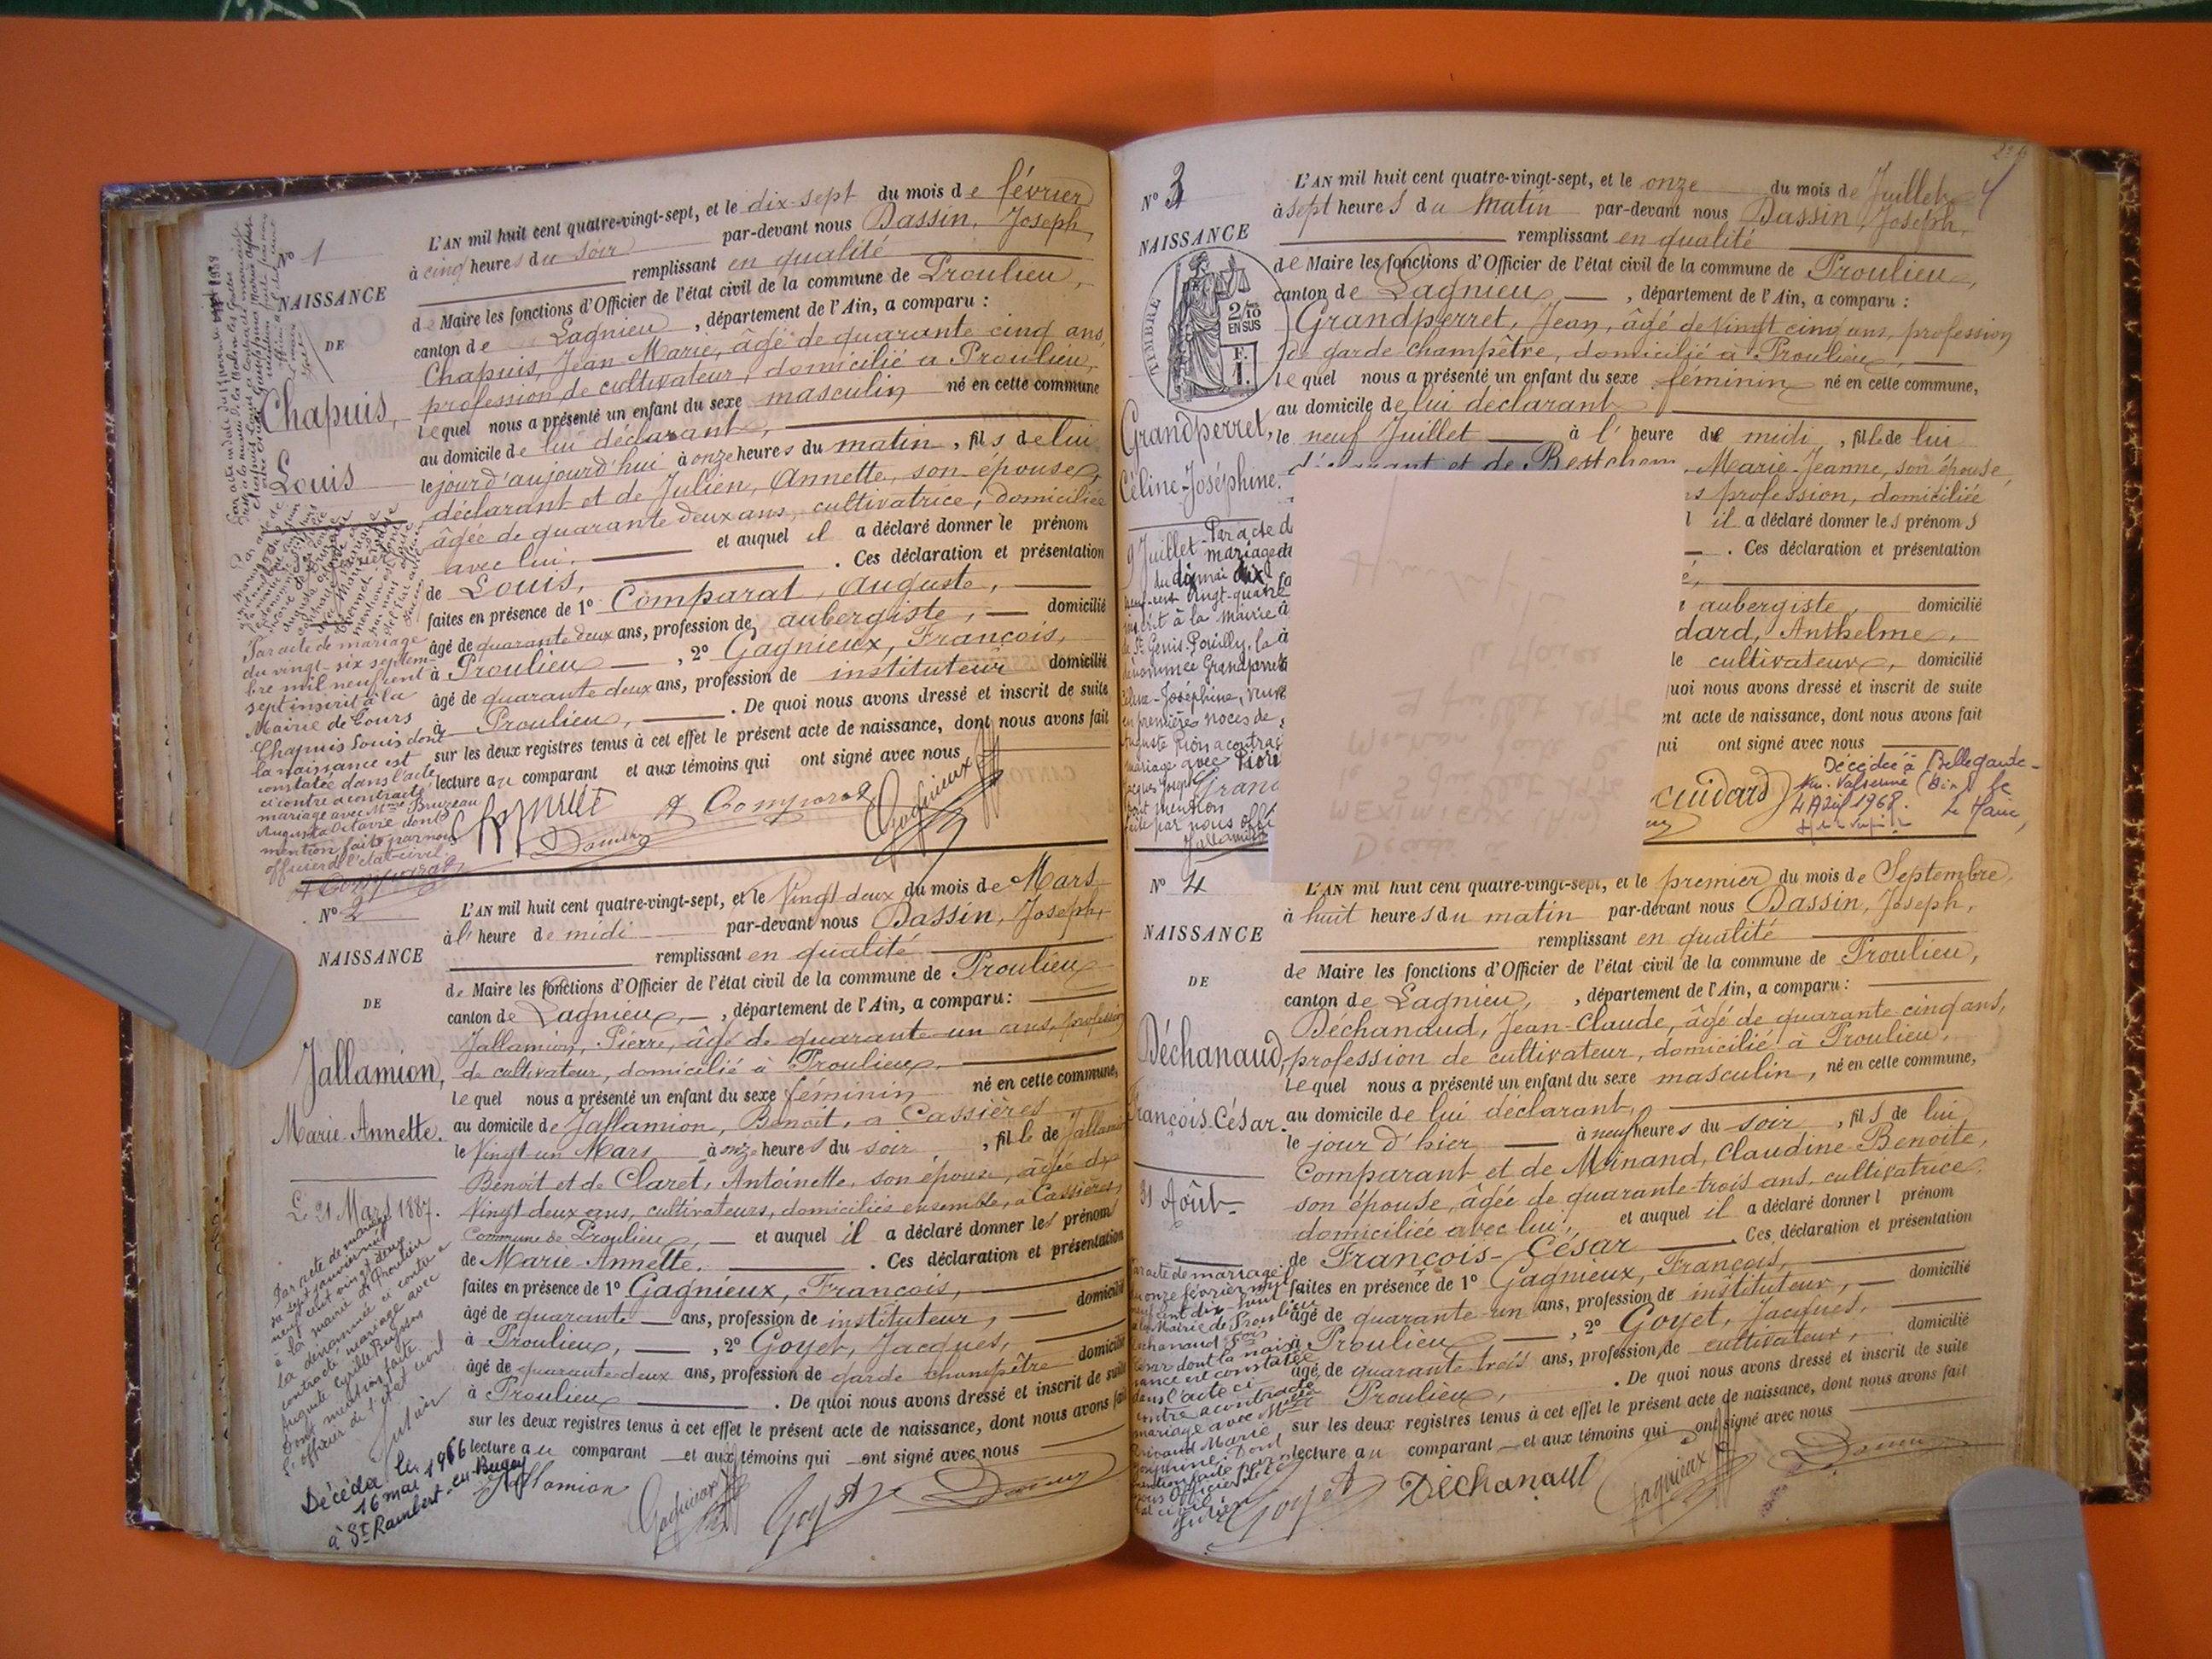 N° 1
NAISSANCE
DE
Chapuis,
Louis
L'AN mil huit cent quatre-vingt-sept, et le dix-sept du mois de février
à cinq heures du soir par-devant nous Dassin, Joseph,
remplissant en qualité
de Maire les fonctions d'Officier de l'état civil de la commune de Proulieu,
canton de Lagnieu, département de l'Ain, a comparu :
Chapuis, Jean Marie, âgé de quarante cinq ans,
profession de cultivateur, domicilié à Proulieu,
lequel nous a présenté un enfant du sexe masculin né en cette commune
au domicile de lui déclarant,
le jour d'aujourd'hui à onze heures du matin, fils de lui
déclarant et de Julien, Annette, son épouse,
âgée de quarante deux ans, cultivatrice, domiciliée
avec lui, et auquel il a déclaré donner le prénom
de Louis, . Ces déclaration et présentation
faites en présence de 1° Comparat, Auguste,
âgé de quarante deux ans, profession de aubergiste, domicilié
à Proulieu, 2° Gagnieux, François,
âgé de quarante deux ans, profession de instituteur domicilié
à Proulieu, . De quoi nous avons dressé et inscrit de suite
sur les deux registres tenus à cet effet le présent acte de naissance, dont nous avons fait
lecture au comparant et aux témoins qui ont signé avec nous
Par acte de mariage
du vingt-six septem-
bre mil neuf cent
sept inscrit à la
Mairie de Cours
Chapuis Louis dont
la naissance est
constatée dans l'acte
ci contre a contracté
mariage avec Mme Bruzeau
Augusta Octavie dont
mention faite par nous
officier de l'état-civil.
A Comparat
Gagnieux
N° 2
NAISSANCE
DE
Jallamion,
Marie-Annette.
Le 21 Mars 1887.
L'AN mil huit cent quatre-vingt-sept, et le Vingt deux du mois de Mars
à l'heure de midi par-devant nous Dassin, Joseph,
remplissant en qualité
de Maire les fonctions d'Officier de l'état civil de la commune de Proulieu
canton de Lagnieu, département de l'Ain, a comparu :
Jallamion, Pierre, âgé de quarante un ans, profession
de cultivateur, domicilié à Proulieu,
lequel nous a présenté un enfant du sexe féminin né en cette commune,
au domicile de Jallamion, Benoit, à Cassières
le Vingt un Mars à onze heures du soir, fille de Jallamion
Benoit et de Claret, Antoinette, son épouse, âgée de
Vingt deux ans, cultivateurs, domiciliés ensemble, à Cassières
Commune de Proulieu, et auquel il a déclaré donner les prénoms
de Marie Annette. . Ces déclaration et présentation
faites en présence de 1° Gagnieux, François,
âgé de quarante ans, profession de instituteur, domicilié
à Proulieu, 2° Goyet, Jacques,
âgé de quarante deux ans, profession de garde champêtre domicilié
à Proulieu . De quoi nous avons dressé et inscrit de suite
sur les deux registres tenus à cet effet le présent acte de naissance, dont nous avons fait
lecture au comparant et aux témoins qui ont signé avec nous
Par acte de mariage
du sept janvier mil
neuf cent vingt deux
à la mairie de Proulieu
la dénommée ci contre a
contracté mariage avec
Auguste Cyrille Buysson
Dont mention faite
l'officier de l'état civil
Décédée le
16 mai 1966
à St Rambert-en-Bugey
Jallamion
Gagnieux
Goyet
N° 3
NAISSANCE
TIMBRE
2/10
EN SUS
Grandperret,
Céline-Joséphine.
9 Juillet
L'AN mil huit cent quatre-vingt-sept, et le onze du mois de Juillet
à sept heures du matin par-devant nous Dassin, Joseph,
remplissant en qualité
de Maire les fonctions d'Officier de l'état civil de la commune de Proulieu,
canton de Lagnieu, département de l'Ain, a comparu :
Grandperret, Jean, âgé de Vingt cinq ans, profession
de garde champêtre, domicilié à Proulieu,
lequel nous a présenté un enfant du sexe féminin né en cette commune,
au domicile de lui déclarant
le neuf Juillet à l'heure de midi, fille de lui
déclarant et de Marie-Jeanne, son épouse,
profession, domiciliée
il a déclaré donner les prénoms
. Ces déclaration et présentation
aubergiste, domicilié
Anthelme,
cultivateur, domicilié
nous avons dressé et inscrit de suite
acte de naissance, dont nous avons fait
ont signé avec nous
Par acte de
mariage
neuf-cent vingt-quatre
inscrit à la Mairie
de St Genis-Pouilly, la
dénommée Grandperret
Céline-Joséphine, veuve
en premières noces de
Auguste Pion a contracté
mariage avec
dont mention
faite par nous
Décédée à Bellegarde-
sur-Valserine (Ain) le
4 Août 1968.
Le Maire,
N° 4
NAISSANCE
DE
Déchanaud,
François-César.
31 Août
L'AN mil huit cent quatre-vingt-sept, et le premier du mois de Septembre,
à huit heures du matin par-devant nous Dassin, Joseph,
remplissant en qualité
de Maire les fonctions d'Officier de l'état civil de la commune de Proulieu,
canton de Lagnieu, département de l'Ain, a comparu :
Déchanaud, Jean-Claude, âgé de quarante cinq ans,
profession de cultivateur, domicilié à Proulieu,
lequel nous a présenté un enfant du sexe masculin, né en cette commune,
au domicile de lui déclarant,
le jour d'hier à neuf heures du soir, fils de lui
Comparant et de Minand, Claudine Benoite,
son épouse, âgée de quarante-trois ans, cultivatrice,
domiciliée avec lui, et auquel il a déclaré donner l prénom
de François-César . Ces déclaration et présentation
faites en présence de 1° Gagnieux, François,
âgé de quarante un ans, profession de instituteur, domicilié
à Proulieu, 2° Goyet, Jacques,
âgé de quarante trois ans, profession de cultivateur, domicilié
Proulieu, . De quoi nous avons dressé et inscrit de suite
sur les deux registres tenus à cet effet le présent acte de naissance, dont nous avons fait
lecture au comparant et aux témoins qui ont signé avec nous
Par acte de mariage
du onze février mil
neuf cent dix-huit
à la Mairie de Proulieu
Déchanaud Fois
César dont la nais-
sance est constatée
dans l'acte ci-
contre a contracté
mariage avec Melle
Marie
Joséphine. Dont
mention faite par
nous Officier de l'é-
tat civil
Goyet
Déchanaud
Gagnieux